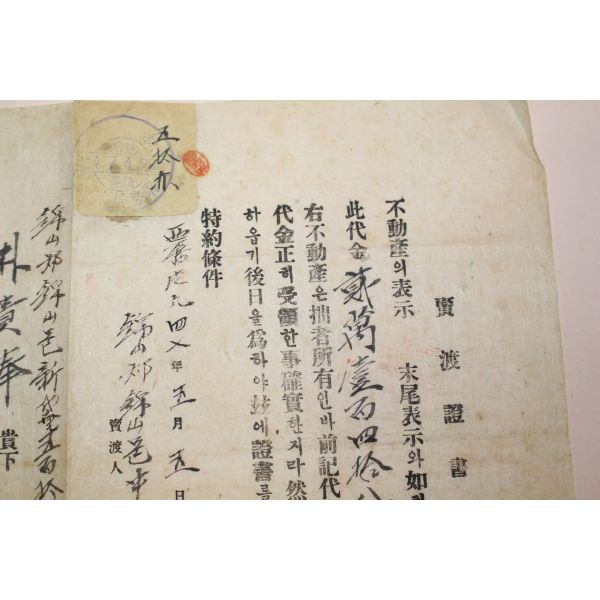 賣渡證書
不動產의表示 末尾表示와如
此代金 貳萬壹百四拾八
右不動產은拙者所有인바前記代
代金正히受領한事確實한지라然
하옵기後日을爲하야玆에證書를
特約條件
西曆一九四八年五月五日
錦山郡錦山邑
賣渡人
五拾
錦山郡錦山邑新垈里五百拾
朴 奉 貴下